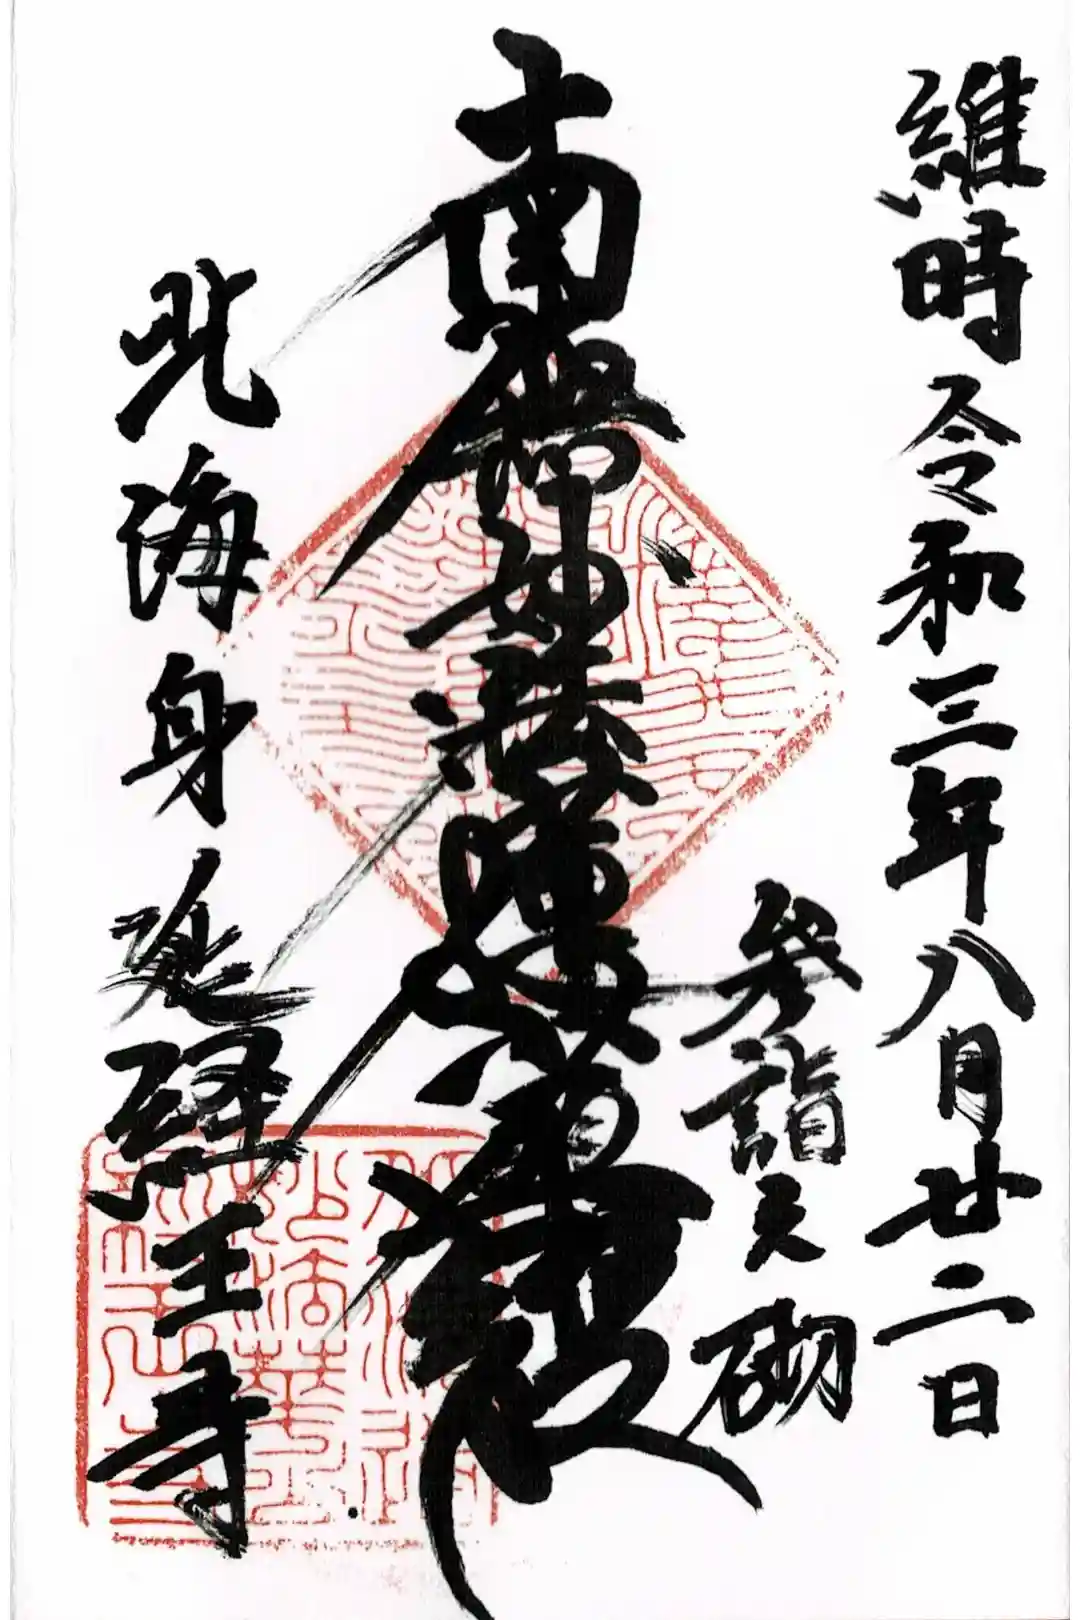 維時令和三年八月廿二日
参詣之砌
南無妙法蓮華經
北海身延経王寺